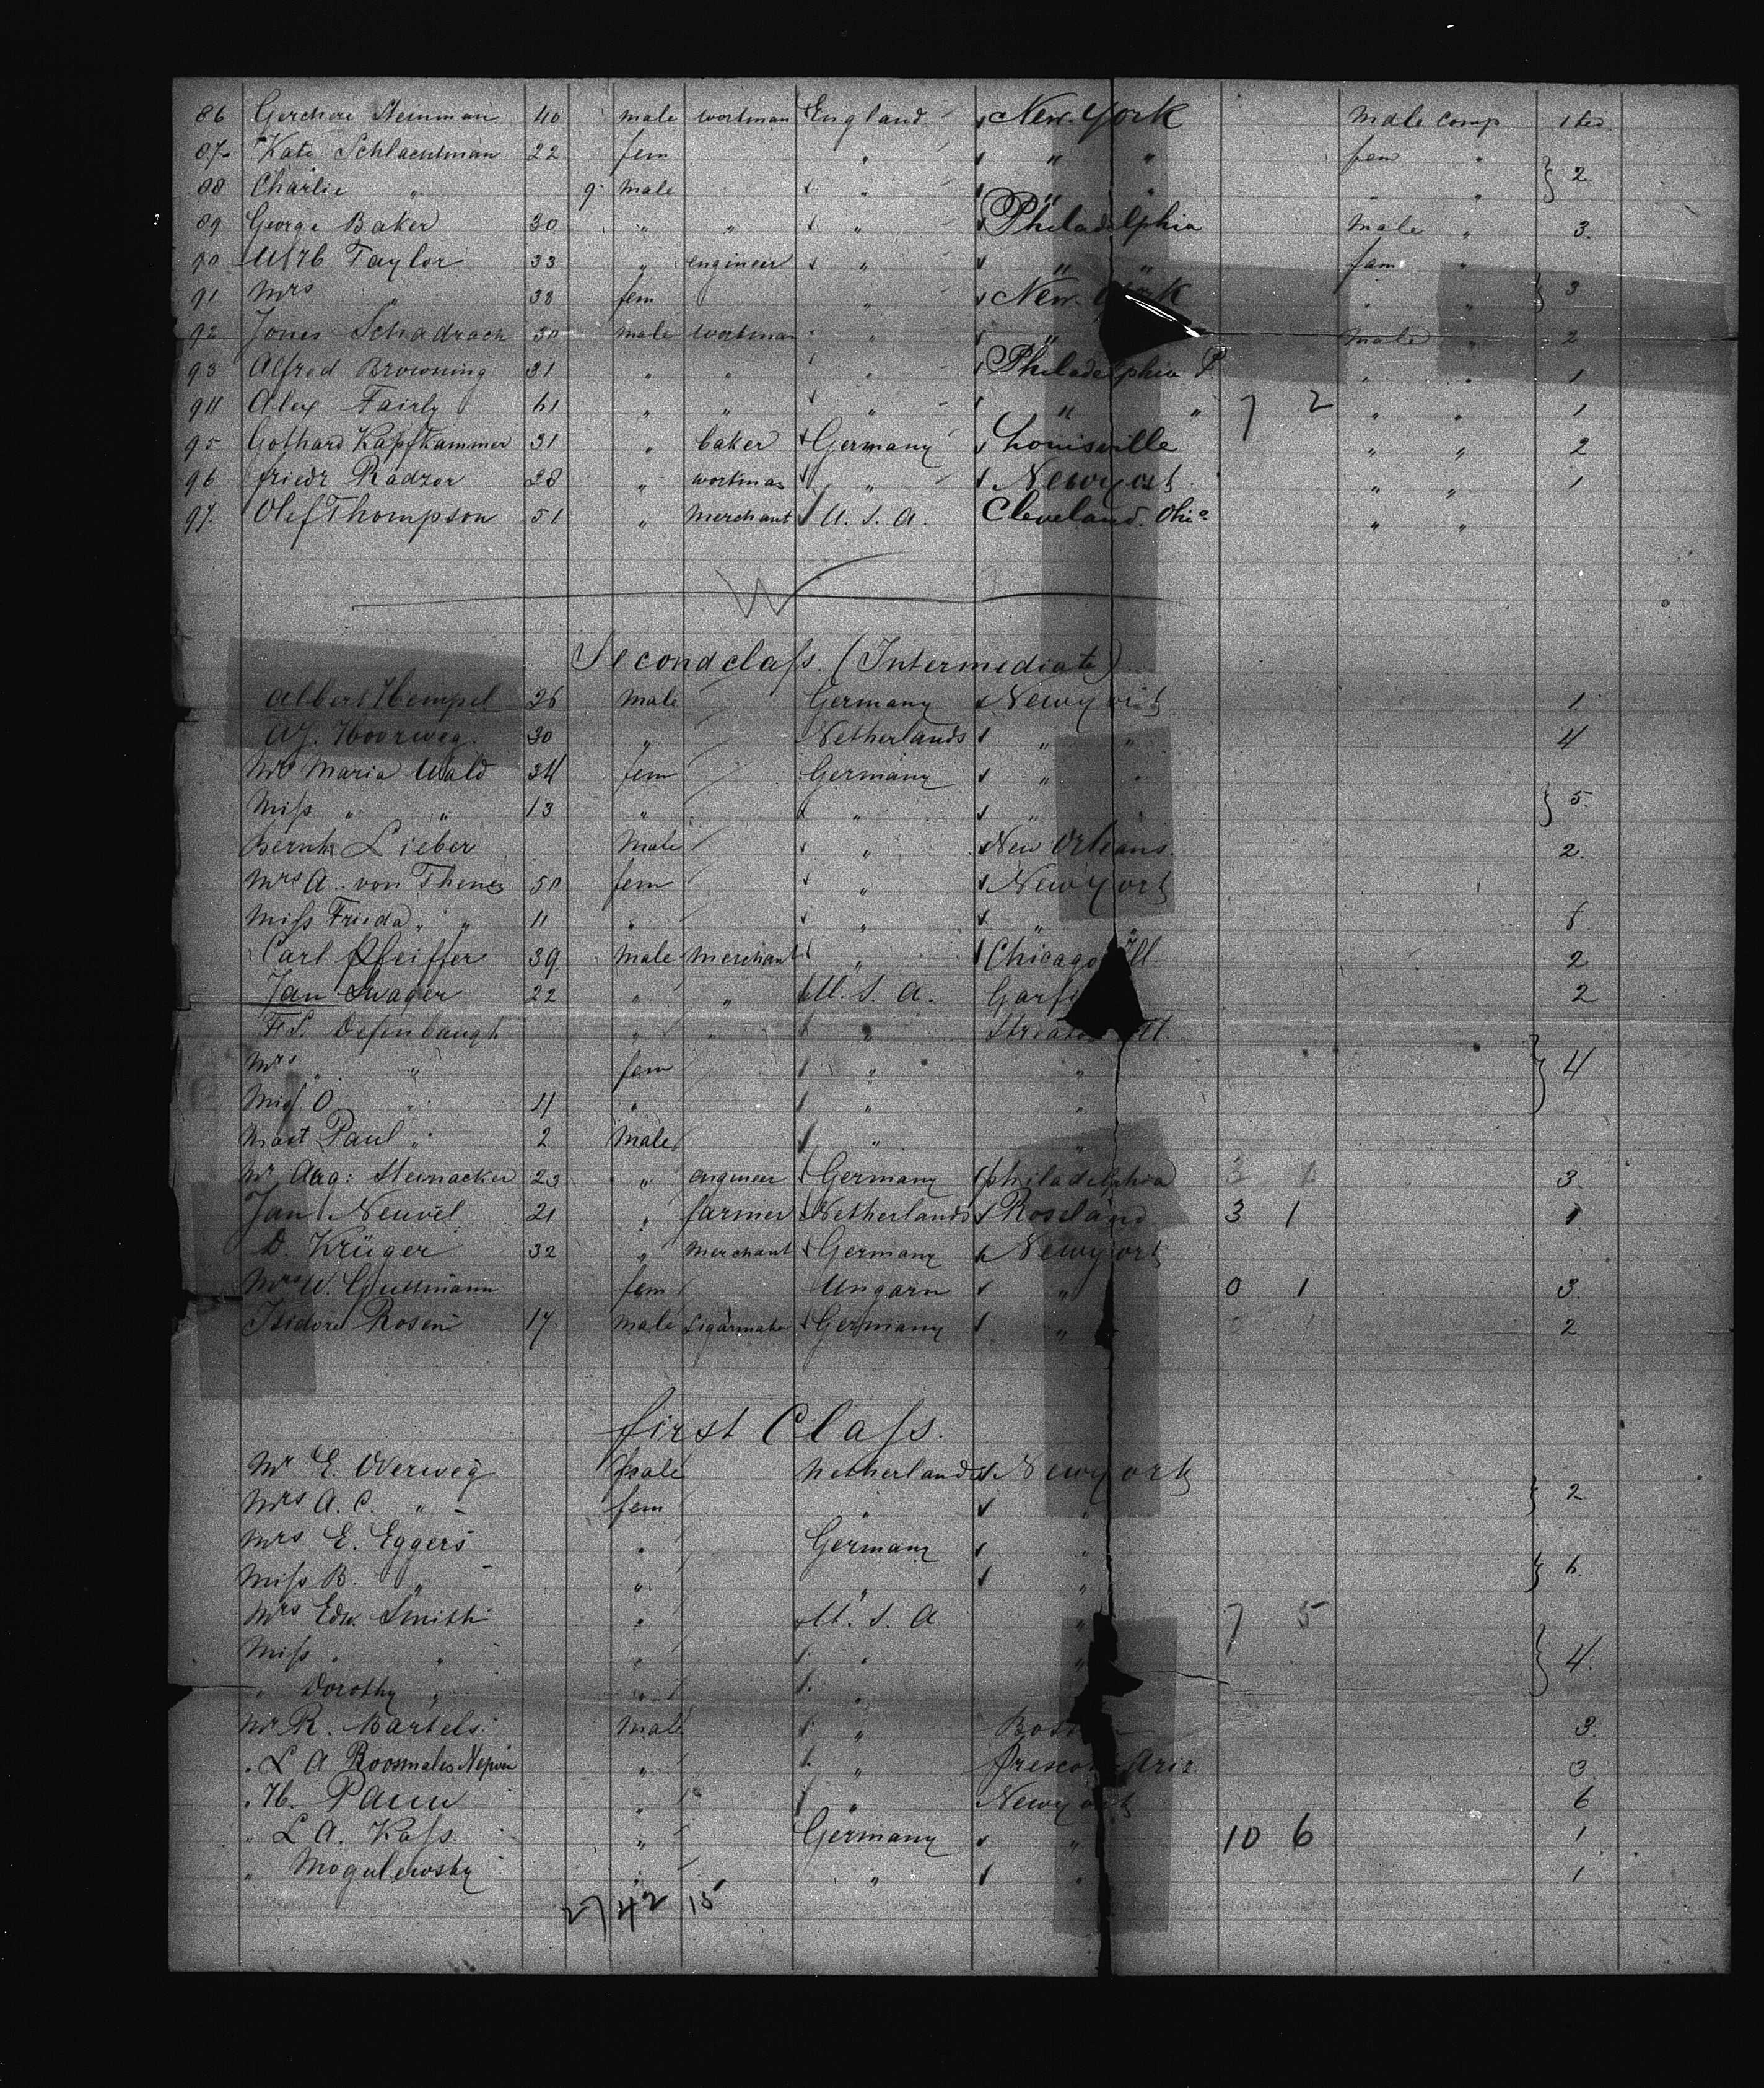 86 Gerchon Steinman 40 male workman England New York Male Comp 1
87 Kate Schlachtman 22 fem " " " fem " 2
88 Charlie " 9 male " " " " "
89 George Baker 30 " " " Philadelphia Male " 3.
90 Taylor 33 " engineer " " " fam "
91 Mrs " 38 fem " New York " " 3
92 Jones Schadrach 30 male workman " " Male " 2
93 Alfred Browning 31 " " " Philadelphia P. " " 1
94 Alex Fairly 61 " " " " " 7 2 " " 1
95 Gothard Kapfkammer 31 " baker Germany Louisville " " 2
96 friedr Radzor 28 " workman " Newyork " " 1
97. Olef Thompson 51 " Merchant U. S. A. Cleveland. Ohio " "
Secondclass. (Intermediate)
Albert Hempel 26 male Germany Newyork 1
AJ. Hoorweg. 30 " Netherlands " " 4
Mrs Maria Wald 34 fem Germany " "
Miss " " 13 " " " " 5.
Bernh Lieber Male " New Orleans. 2.
Mrs A. von Thenes 50 fem " Newyork
Miss Frieda " " 11 " " "
Carl Pfeiffer 39 Male Merchant " Chicago Ill 2
Jan Swager 22 " " U. S. A. 2
F.S. Defenbaugh " " "
Mrs " " fem " " 4
Miss O " " "
Mast Paul " 2 Male " "
Mr Aug: Steinacker 23 " engineer Germany philadelphia 3.
Jan Neuvel 21 " farmer Netherlands Roseland 3 1 1
D. Krüger 32 " Merchant Germany Newyork
Mrs W. Guttmann fem Ungarn " 0 1 3.
Isidore Rosen 17 male Sigarmaker Germany " 2
first Class.
Mr E. Overweg Male Netherlands Newyork
Mrs A. C. " fem " " 2
Mrs E. Eggers " Germany "
Miss B. " " " " 6.
Mrs Edw. Smith " U. S. A " 7 5
Miss " " " " " 4.
" Dorothy " " "
Mr R. Bartels. Male " 3.
" L A Roosmales Nepveu " " Prescott Ariz. 3
" H. " " Newyork 6
" L A. Kass. " Germany " 10 6 1
" Mogulewsky " " " 1
27 42 15